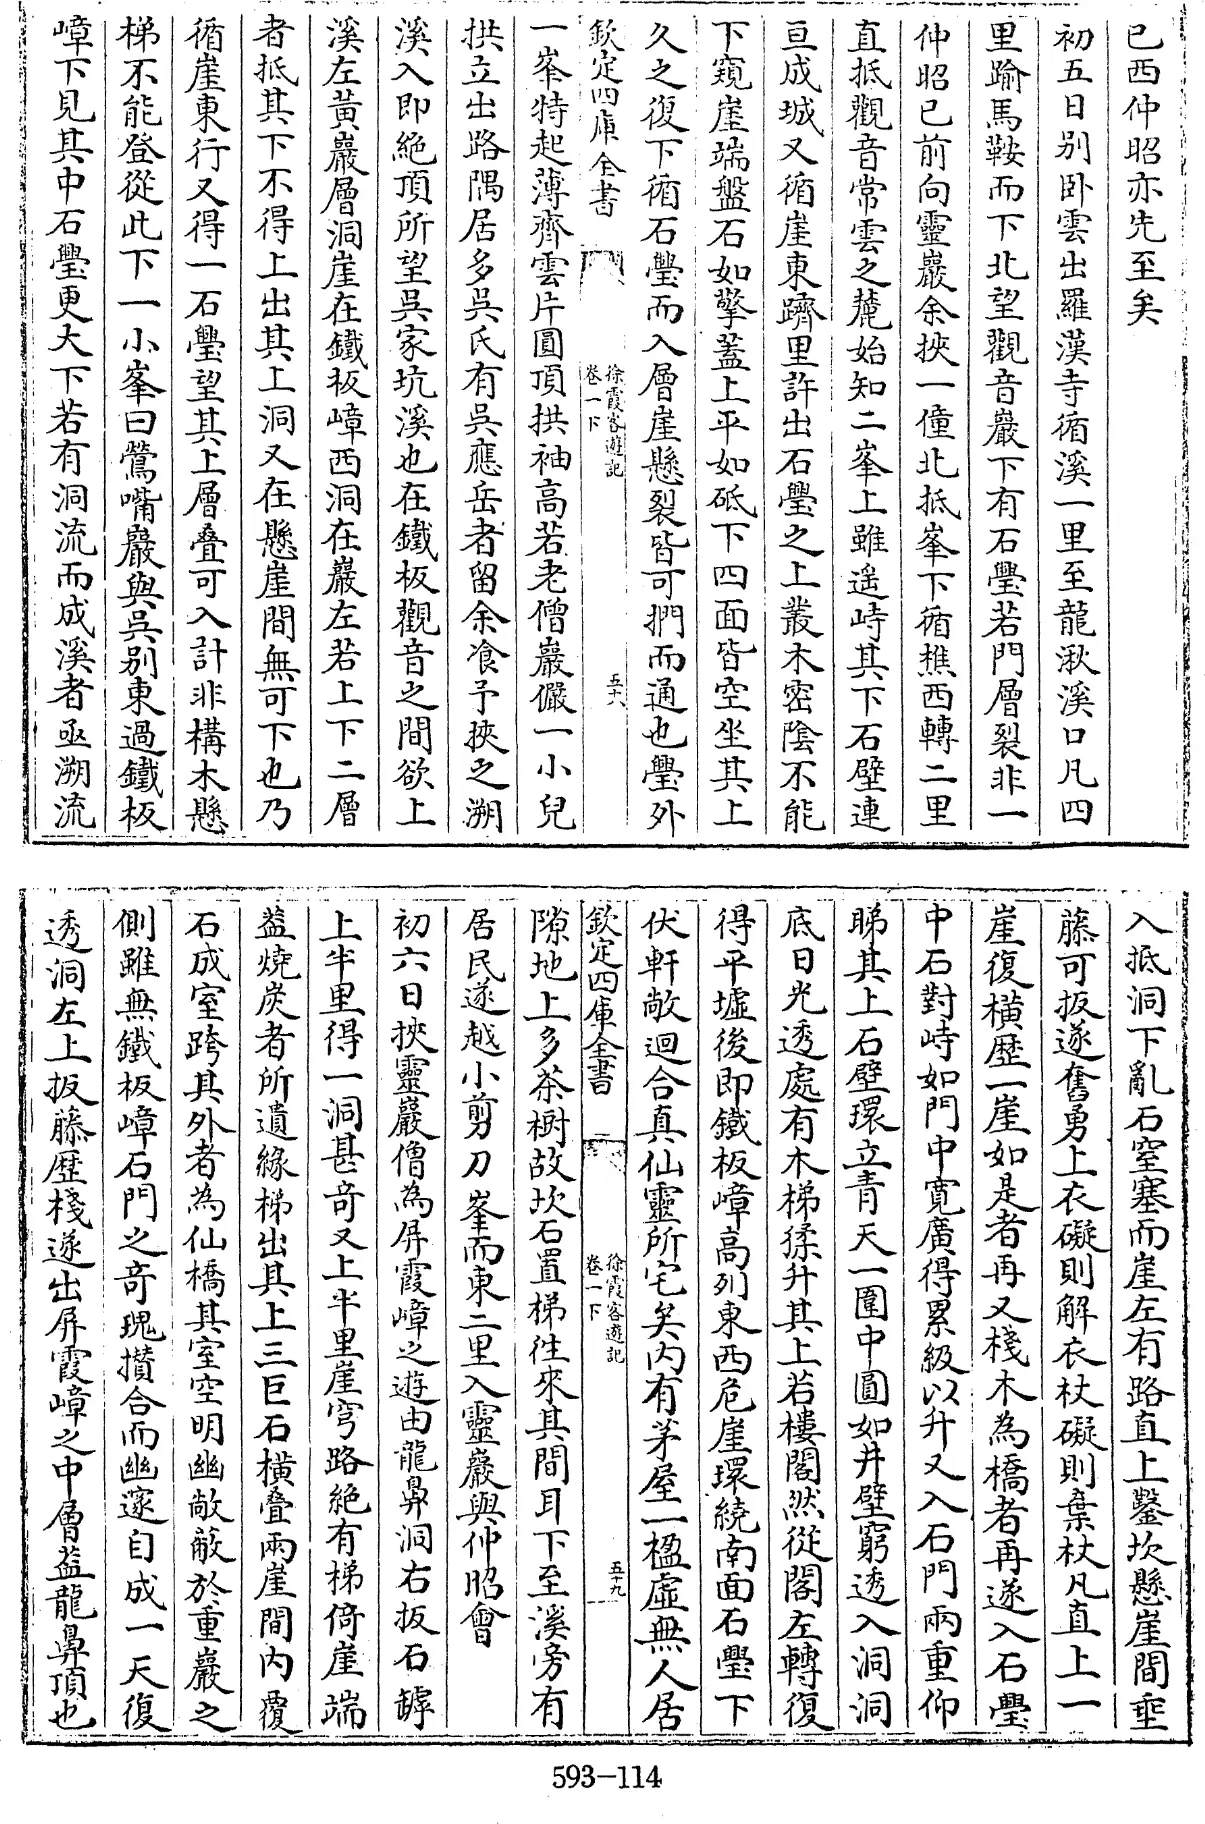 已酉仲昭亦先至矣
初五日别卧雲出羅漢寺循溪一里至龍湫溪口凡四
里踰馬鞍而下北望觀音巖下有石舋若門層裂非一
仲昭已前向靈巖余挾一僮北抵峯下循樵西轉二里
直抵觀音常雲之麓始知二峯上雖遥峙其下石壁連
亘成城又循崖東躋里許出石舋之上叢木密隂不能
下窺崖端盤石如擎蓋上平如砥下四面皆空坐其上
久之復下循石舋而入層崖懸裂皆可捫而通也舋外
欽定四庫全書
徐霞客遊記
卷一下
五十八
一峯特起薄齊雲片圓頂拱袖高若老僧巖儼一小兒
拱立出路隅居多吳氏有吳應岳者留余飡予挾之溯
溪入即絶頂所望吳家坑溪也在鐵板觀音之間欲上
溪左黄巖層洞崖在鐵板嶂西洞在巖左若上下二層
者抵其下不得上出其上洞又在懸崖間無可下也乃
循崖東行又得一石舋望其上層叠可入計非構木懸
梯不能登從此下一小峯曰鶯嘴巖與吳别東過鐵板
嶂下見其中石舋更大下若有洞流而成溪者亟溯流
入抵洞下亂石窒塞而崖左有路直上鑿坎懸崖間垂
藤可扳遂奮勇上衣礙則解衣杖礙則棄杖凡直上一
崖復横歴一崖如是者再又棧木為橋者再遂入石舋
中石對峙如門中寛廣得累級以升又入石門兩重仰
睇其上石壁環立青天一圍中圓如井壁窮透入洞洞
底日光透處有木梯猱升其上若樓閣然從閣左轉復
得平墟後即鐵板嶂高列東西危崖環繞南面石舋下
伏軒敞迴合真仙靈所宅矣内有茅屋一楹虚無人居
欽定四庫全書
徐霞客遊記
卷一下
五十九
隙地上多茶樹故坎石置梯徃來其間耳下至溪旁有
居民遂越小剪刀峯而東二里入靈巖與仲昭會
初六日挾靈巖僧為屏霞嶂之遊由龍鼻洞右扳石罅
上半里得一洞甚奇又上半里崖穹路絶有梯倚崖端
葢燒炭者所遺緣梯出其上三巨石横叠兩崖間内覆
石成室跨其外者為仙橋其室空明幽敞蔽於重巖之
側雖無鐵板嶂石門之奇瑰攅合而幽邃自成一天復
透洞左上扳藤歴棧遂出屏霞嶂之中層葢龍鼻頂也
593-114